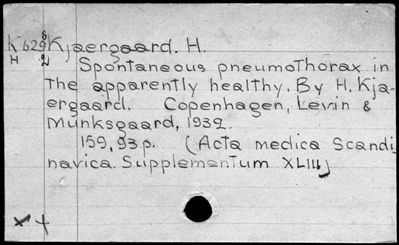 K629 Kjaergaard. H.
H 2 Spontaneous pneumothorax in
the apparently healthy. By H. Kja-
ergaard. Copenhagen, Levin &
Munksgaard, 1932.
159, 93 p. (Acta medica Scandi
navica. Supplementum XLIII)